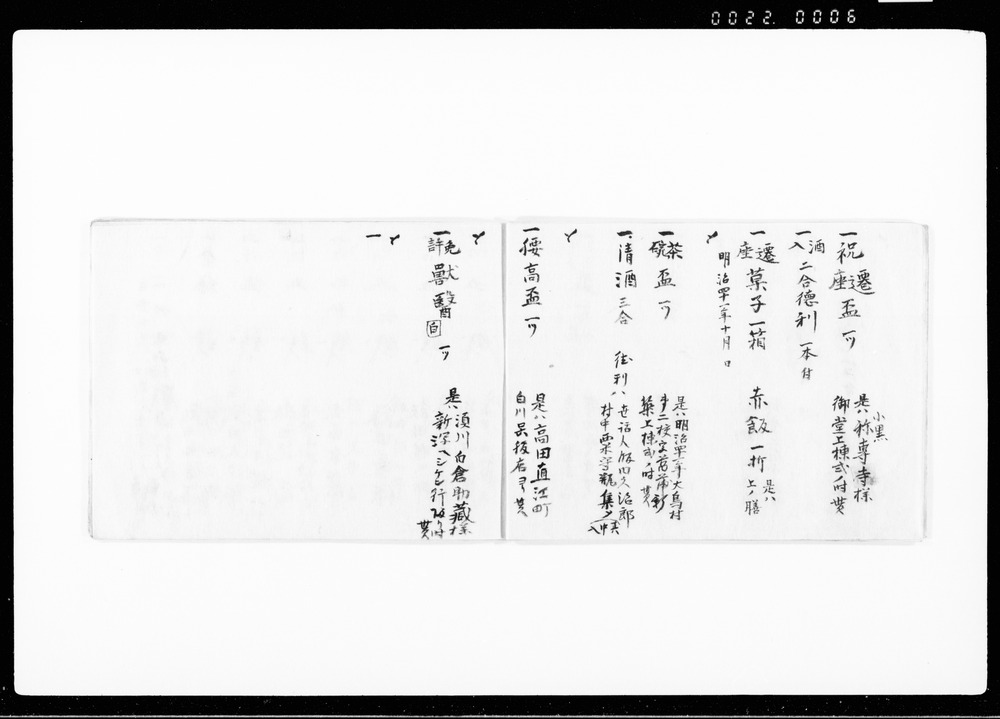 0022. 0006
一祝遷座盃 一ツ
小黒
是ハ専寺様
御堂上棟式ノ時貰
一酒入二合徳利 一本付
一遷座菓子一箱 赤飯一折 是ハ上ノ膳
明治四十一年十月 日
一茶碗盃 一ツ
是ハ明治四十一年大島村
第二校
築上棟式ノ時貰
一清酒三合 徳利ハ世話人飯田久治郎
村中
集メ
一倭高盃 一ツ
是ハ高田直江町
白川呉服店ヨリ貰
一免許獸醫 一ツ
是ハ須川白倉助藏様
新潟ヘシケン行
貰
一